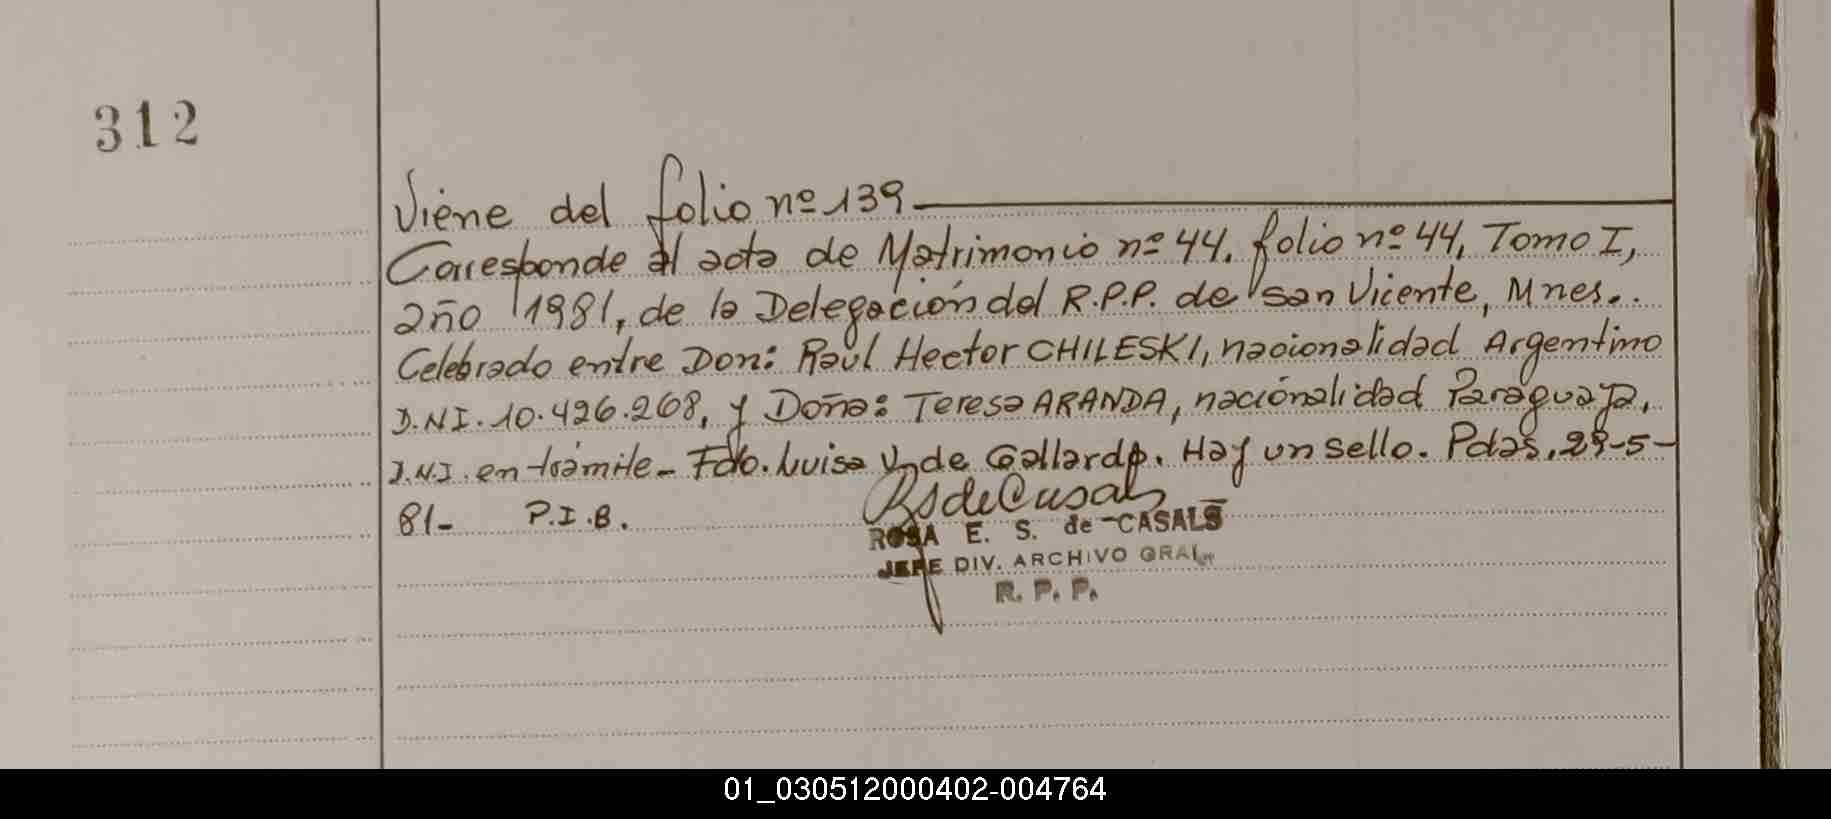 312
Viene del folio nº 139
Corresponde al acta de Matrimonio nº 44, folio nº 44, Tomo I,
año 1981, de la Delegación del R.P.P. de San Vicente, Mnes..
Celebrado entre Don: Raúl Hector CHILESKI, nacionalidad Argentino
D.NI. 10.426.268, y Doña: Teresa ARANDA, nacionalidad Paraguaya,
D.N.I. en trámite- Fdo. Luisa V. de Gallardo. Hay un sello. Pdas, 29-5-
81- P.I.B.
RS de Casals
ROSA E. S. de CASALS
JEFE DIV. ARCHIVO GRAL.
R. P. P.
01_030512000402-004764